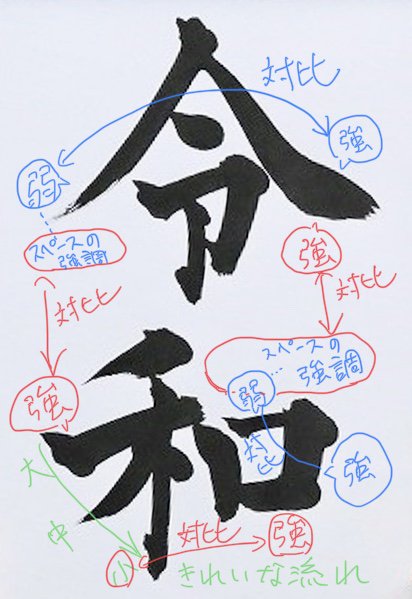 令
和
対比
弱
強
スペースの
強調
強
対比
対比
スペースの
強調
強
弱
対比
強
大
中
小
対比
強
きれいな流れ